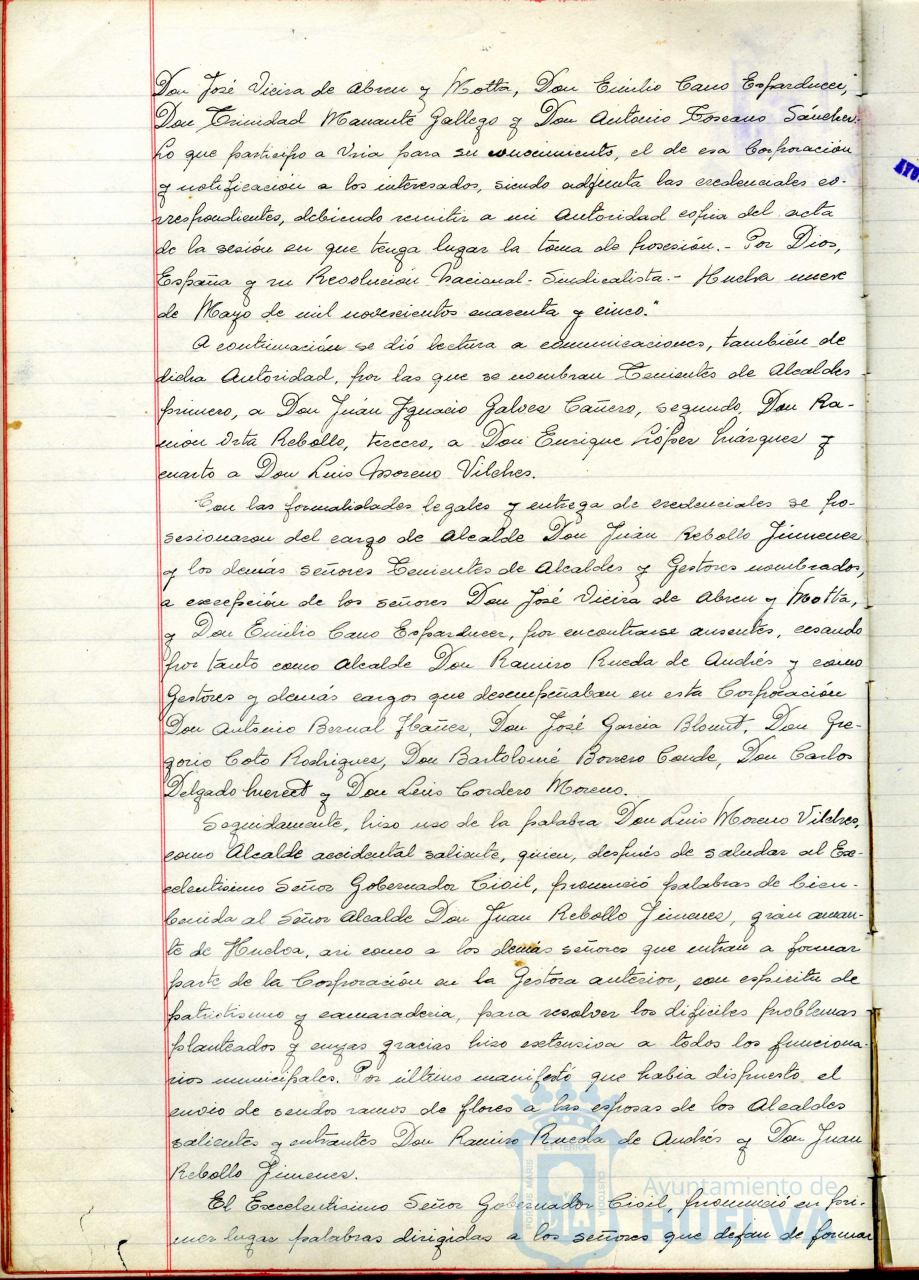 Don José Vieira de Abreu y Motta, Don Emilio Cano Esparducer,
Don Trinidad Manante Gallego y Don Antonio Toscano Sánchez.
Lo que participo a Vria para su conocimiento, el de esa Corporación
y notificación a los interesados, siendo adjunta las credenciales co-
rrespondientes, debiendo remitir a mi Autoridad copia del acta
de la sesión en que tenga lugar la toma de posesión.- Por Dios,
España y su Revolución Nacional-Sindicalista.- Huelva nueve
de Mayo de mil novescientos cuarenta y cinco."
A continuación se dió lectura a comunicaciones, también de
dicha Autoridad, por las que se nombran Tenientes de Alcaldes
primero, a Don Juán Ygnacio Galves Cañero, segundo, Don Ra-
món Orta Rebollo, tercero, a Don Enrique López Márquez y
cuarto a Don Luis Moreno Vilches.
Con las formalidades legales y entrega de credenciales se po-
sesionaron del cargo de Alcalde Don Juán Rebollo Jimenez
y los demás señores Tenientes de Alcaldes y Gestores nombrados,
a excepsión de los señores Don José Vieira de Abreu y Motta,
y Don Emilio Cano Esparducer, por encontrarse ausentes, cesando
por tanto como Alcalde Don Ramiro Rueda de Andrés y como
Gestores y demás cargos que desempeñaban en esta Corporación
Don Antonio Bernal Ybañez, Don José Garcia Blount, Don Gre-
gorio Coto Rodriguez, Don Bartolomé Borrero Conde, Don Carlos
Delgado y Don Luis Cordero Moreno.
Seguidamente, hiso uso de la palabra Don Luis Moreno Vilches,
como Alcalde accidental saliente, quien, después de saludar al Exe-
celentisimo Señor Gobernador Civil, pronunció palabras de bien-
benida al Señor Alcalde Don Juan Rebollo Jimenez, gran aman-
te de Huelva, asi como a los demás señores que entran a formar
parte de la Corporación en la Gestora anterior, con espiritu de
patriotismo y camaraderia, para resolver los dificiles problemas
planteados y cuyas gracias hiso extensiva a todos los funciona-
rios municipales. Por último manifestó que habia dispuesto el
envio de sendos ramos de flores a las esposas de los Alcaldes
salientes y entrantes Don Ramiro Rueda de Andrés y Don Juan
Rebollo Jimenez.
El Excelentisimo Señor Gobernador Civil, pronunció en pri-
mer lugar palabras dirigidas a los señores que dejan de formar
Ayuntamiento de
HUELVA